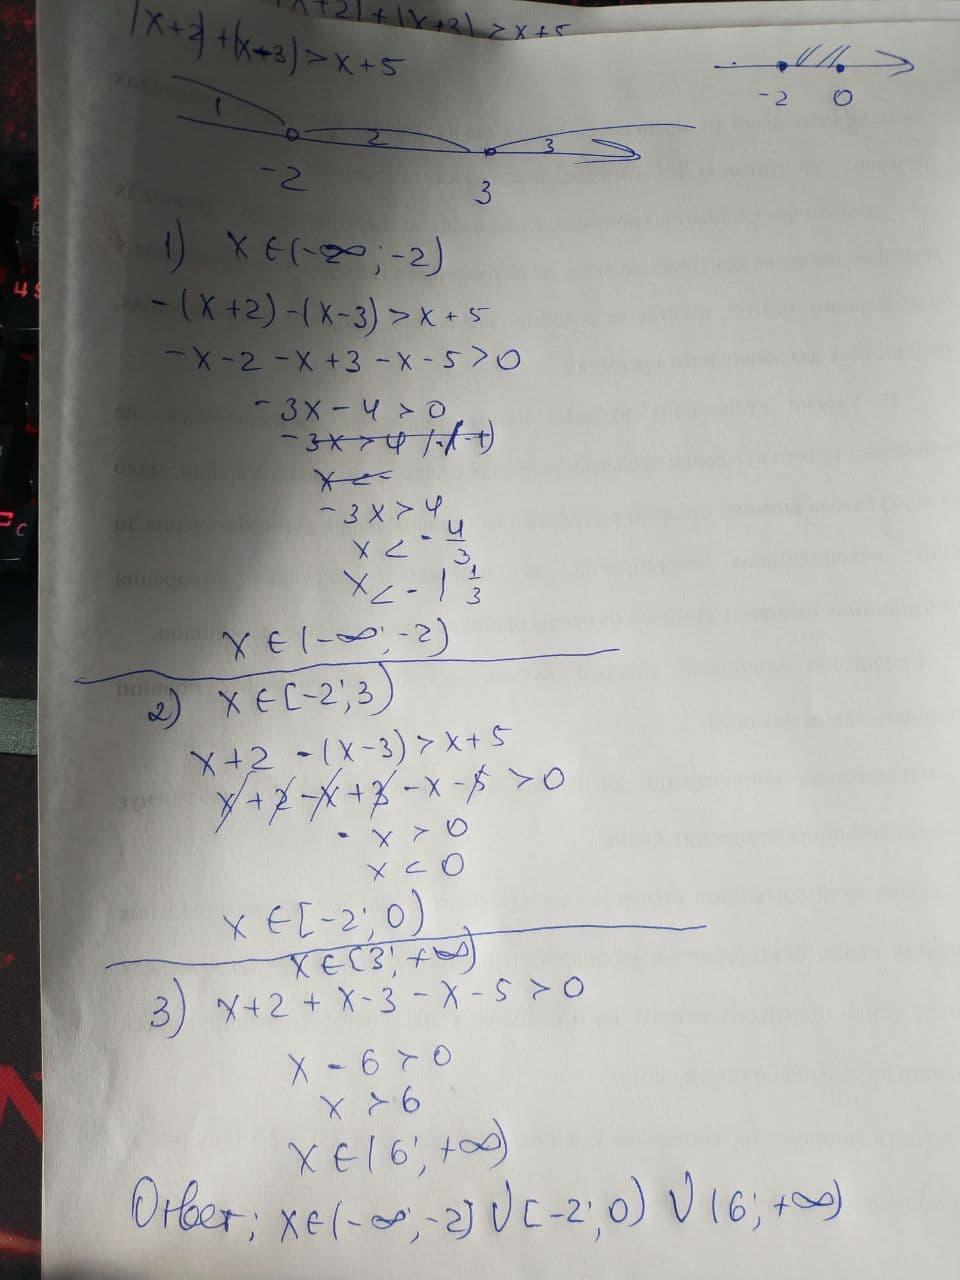 x+2|+|x+3|>x+5
|x+2|+|x-3|>x+5
-2 0
1 2 3
-2 3
1) x∈(-∞;-2)
-(x+2)-(x-3)>x+5
-x-2-x+3-x-5>0
-3x-4>0
-3x>4 |·(-1)
x<-
-3x>4
x<-4/3
x<-1 1/3
x∈(-∞;-2)
2) x∈[-2;3)
x+2-(x-3)>x+5
x+2-x+3-x-5>0
-x>0
x<0
x∈[-2;0)
x∈[3;+∞)
3) x+2+x-3-x-5>0
x-6>0
x>6
x∈(6;+∞)
Ответ: x∈(-∞;-2]∪[-2;0)∪(6;+∞)